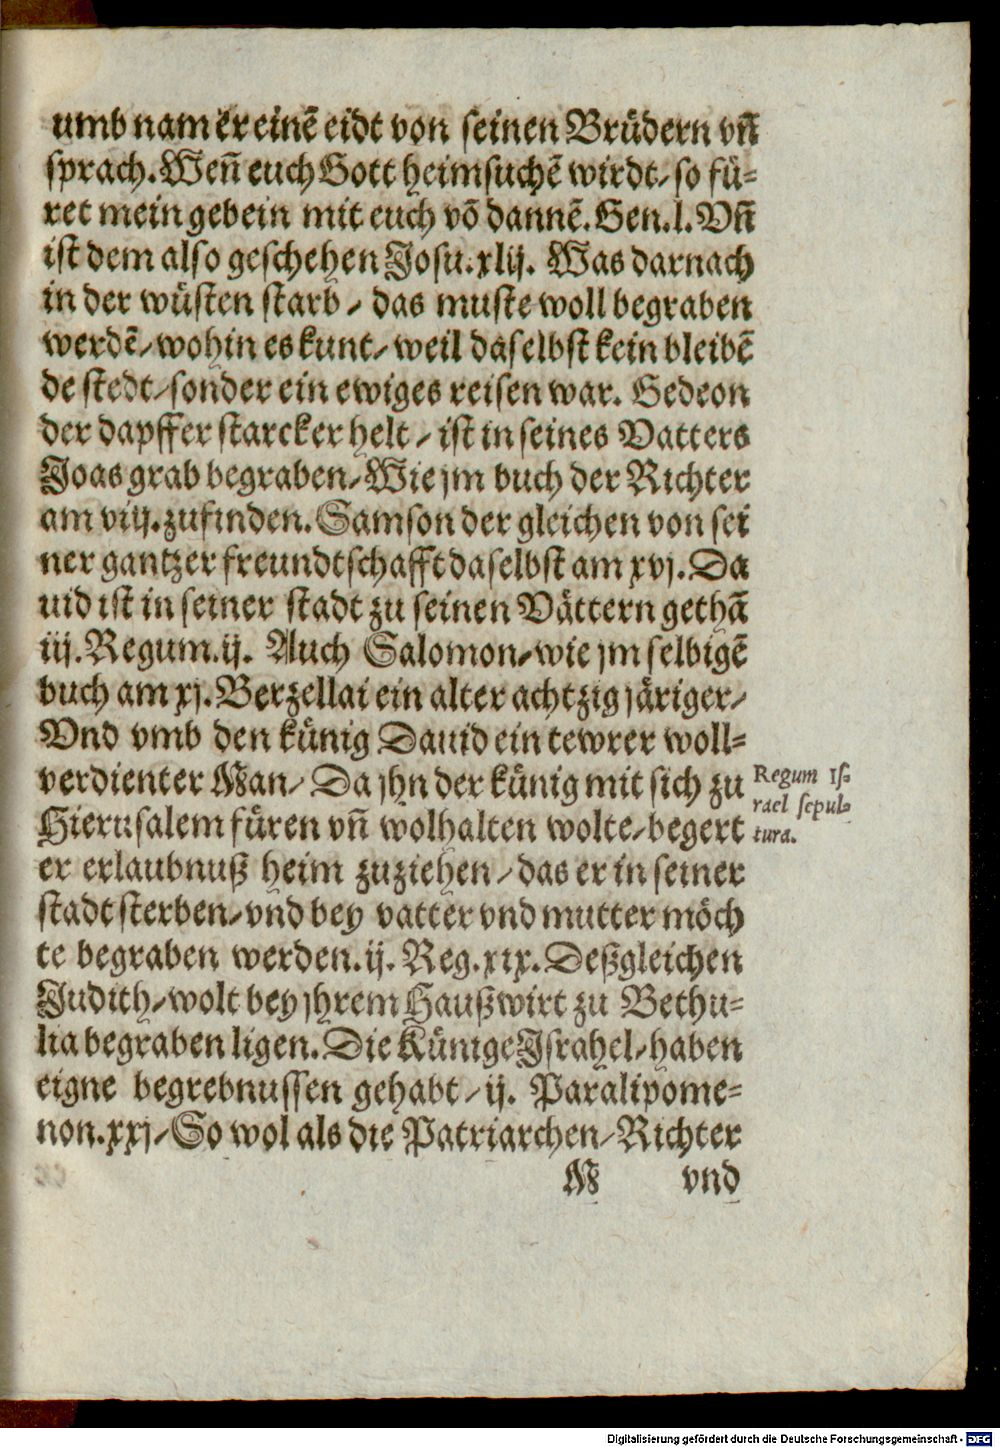 umb nam er einē eidt von seinen Brüdern vñ
sprach. Weñ euch Gott heimsuchē wirdt / so fü=
ret mein gebein mit euch vō dannē. Gen. l. Vñ
ist dem also geschehen Josu. xlij. Was darnach
in der wüsten starb / das muste woll begraben
werdē / wohin es kunt / weil daselbst kein bleibē
de stedt / sonder ein ewiges reisen war. Gedeon
der dapffer starcker helt / ist in seines Vatters
Joas grab begraben / Wie jm buch der Richter
am viij. zufinden. Samson der gleichen von sei
ner gantzer freundtschafft daselbst am xvj. Da
uid ist in seiner stadt zu seinen Vättern gethā
iij. Regum. ij. Auch Salomon / wie jm selbigē
buch am xj. Berzellai ein alter achtzig järiger /
Vnd vmb den künig Dauid ein tewrer woll=
verdienter Man / Da jhn der künig mit sich zu
Hierusalem füren vñ wolhalten wolte / begert
er erlaubnuß heim zuziehen / das er in seiner
stadt sterben / vnd bey vatter vnd mutter möch
te begraben werden. ij. Reg. xix. Deßgleichen
Judith / wolt bey jhrem Haußwirt zu Bethu=
lia begraben ligen. Die Künige Jsrahel / haben
eigne begrebnussen gehabt / ij. Paralipome=
non. xxj / So wol als die Patriarchen / Richter
M vnd
Regum Is=
rael sepul=
tura.
Digitalisierung gefördert durch die Deutsche Forschungsgemeinschaft - DFG